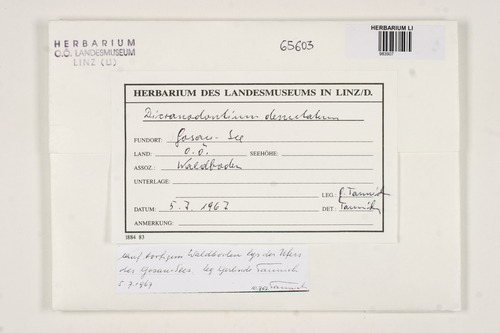 HERBARIUM
O.Ö. LANDESMUSEUM
LINZ (LI)
65603
HERBARIUM LI
HERBARIUM DES LANDESMUSEUMS IN LINZ/D.
Dicranodontium denudatum
FUNDORT: Gosau-See
LAND: O.Ö. SEEHÖHE:
ASSOZ.: Waldboden
UNTERLAGE:
LEG.:
DATUM: 5.7.1967 DET.:
ANMERKUNG:
1884 83
auf torfigem Waldboden des Ufers
des Gosau-Sees. leg Gerlinde
5.7.1967